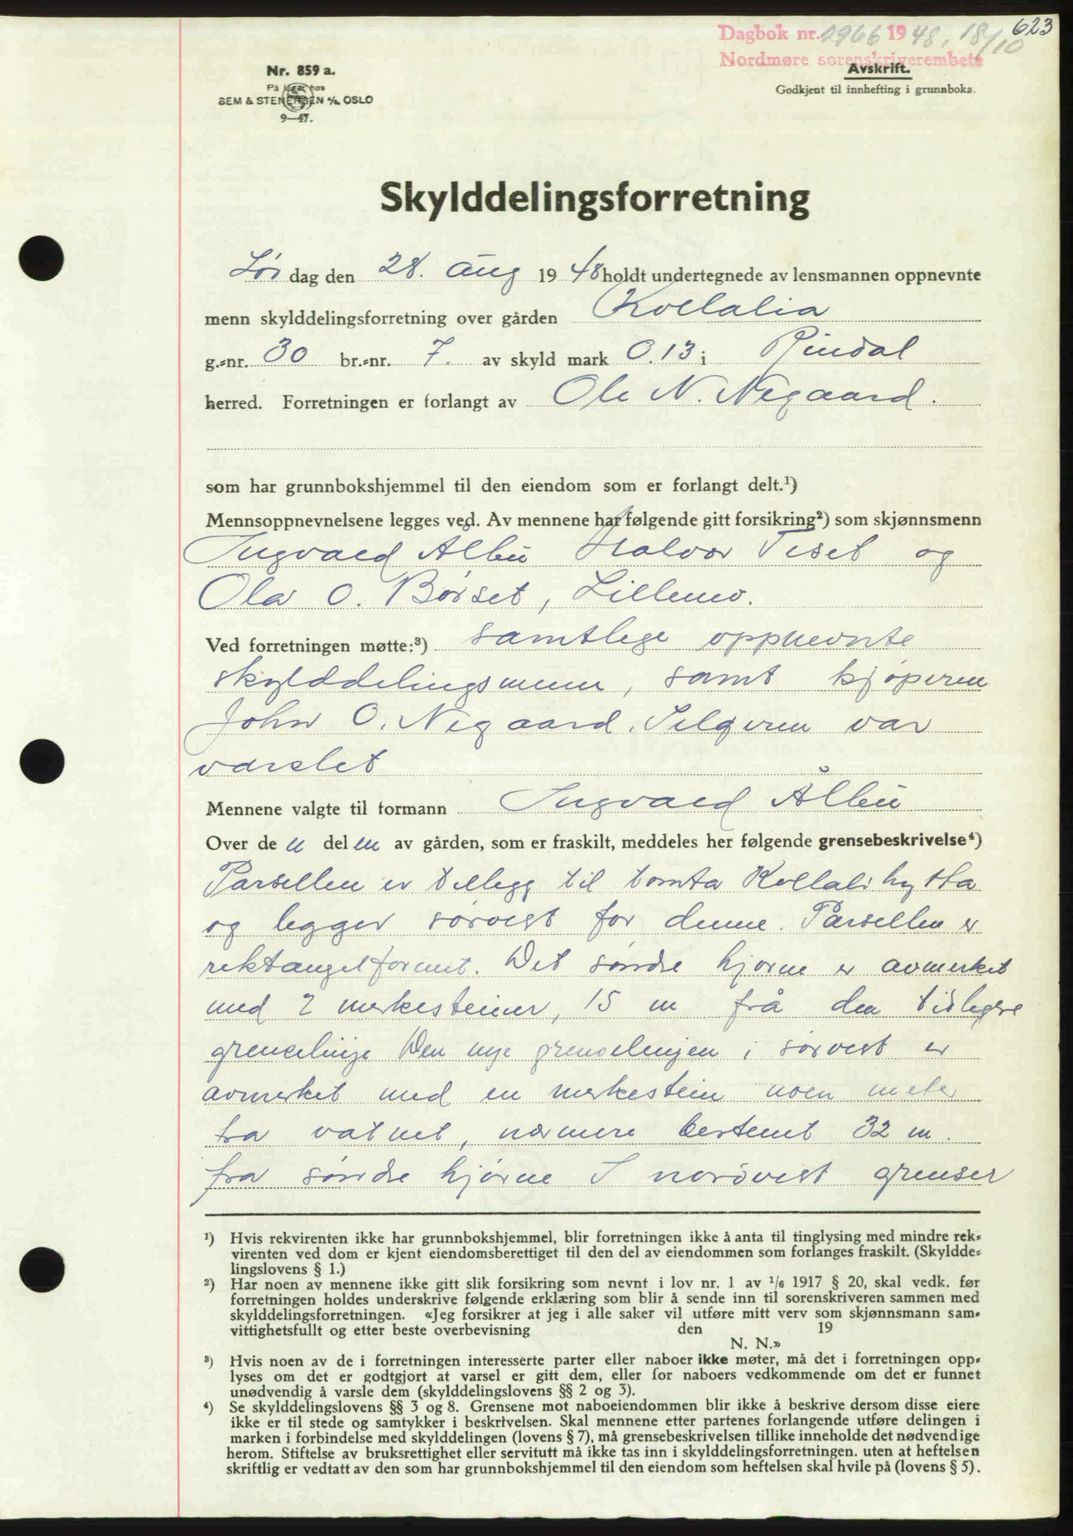 623
Dagbok nr. 2966 1948, 18/10
Nordmøre sorenskriverembete
Avskrift.
Godkjent til innhefting i grunnboka.
Nr. 859 a.
På lager hos
SEM & STENERSEN A/S, OSLO
9—47.
Skylddelingsforretning
Lør dag den 28. aug 1948 holdt undertegnede av lensmannen oppnevnte
menn skylddelingsforretning over gården Kvellalia
g.-nr. 30 br.-nr. 7. av skyld mark 0.13 i Rindal
herred. Forretningen er forlangt av Ole N. Negaard.
som har grunnbokshjemmel til den eiendom som er forlangt delt.¹)
Mennsoppnevnelsene legges ved. Av mennene har følgende gitt forsikring²) som skjønnsmenn
Ingvald Ålbu Halvor Tiset og
Ola O. Børset, Lillemo.
Ved forretningen møtte:³) samtlege oppnevnte
skylddelingsmenn, samt kjøperen
John O. Negaard. Selgeren var
varslet
Mennene valgte til formann Ingvald Ålbu
Over de n del en av gården, som er fraskilt, meddeles her følgende grensebeskrivelse⁴)
Parsellen er tillegg til tomta Kvellalihytta
og legger sørvest for denne. Parsellen er
rektangelformet. Det søndre hjørne er avmerket
med 2 merkesteiner, 15 m frå den tidligere
grenselinje Den nye grenselinjen i sørvest er
avmerket med en merkestein noen meter
fra vatnet, nærmere bestemt 32 m.
fra søndre hjørne I nordvest grenser
¹) Hvis rekvirenten ikke har grunnbokshjemmel, blir forretningen ikke å anta til tinglysing med mindre rek-
virenten ved dom er kjent eiendomsberettiget til den del av eiendommen som forlanges fraskilt. (Skyldde-
lingslovens § 1.)
²) Har noen av mennene ikke gitt slik forsikring som nevnt i lov nr. 1 av 1/6 1917 § 20, skal vedk. før
forretningen holdes underskrive følgende erklæring som blir å sende inn til sorenskriveren sammen med
skylddelingsforretningen. «Jeg forsikrer at jeg i alle saker vil utføre mitt verv som skjønnsmann sam-
vittighetsfullt og etter beste overbevisning den 19
N. N.»
³) Hvis noen av de i forretningen interesserte parter eller naboer ikke møter, må det i forretningen opp-
lyses om det er godtgjort at varsel er gitt dem, eller for naboers vedkommende om det er funnet
unødvendig å varsle dem (skylddelingslovens §§ 2 og 3).
⁴) Se skylddelingslovens §§ 3 og 8. Grensene mot naboeiendommen blir ikke å beskrive dersom disse eiere
ikke er til stede og samtykker i beskrivelsen. Skal mennene etter partenes forlangende utføre delingen i
marken i forbindelse med skylddelingen (lovens § 7), må grensebeskrivelsen tillike inneholde det nødvendige
herom. Stiftelse av bruksrettighet eller servitutt må ikke tas inn i skylddelingsforretningen, uten at heftelsen
skriftlig er vedtatt av den som har grunnbokshjemmel til den eiendom som heftelsen skal hvile på (lovens § 5).